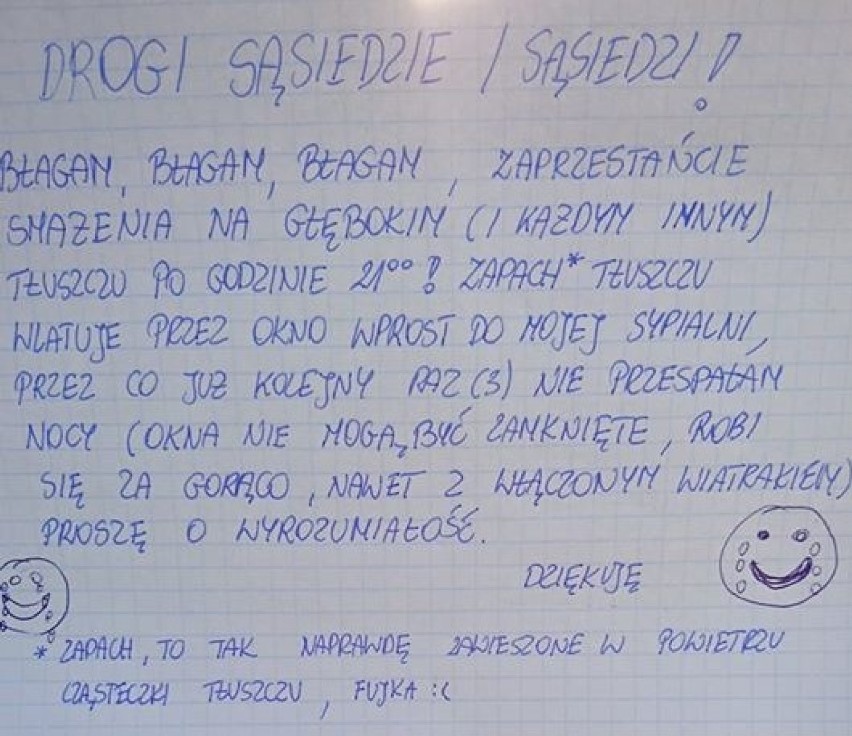 DROGI SĄSIEDZIE / SĄSIEDZI!
BŁAGAM, BŁAGAM, BŁAGAM, ZAPRZESTAŃCIE
SMAŻENIA NA GŁĘBOKIM (I KAŻDYM INNYM)
TŁUSZCZU PO GODZINIE 21⁰⁰! ZAPACH* TŁUSZCZU
WLATUJE PRZEZ OKNO WPROST DO MOJEJ SYPIALNI,
PRZEZ CO JUŻ KOLEJNY RAZ (3) NIE PRZESPAŁAM
NOCY (OKNA NIE MOGĄ BYĆ ZAMKNIĘTE, ROBI
SIĘ ZA GORĄCO, NAWET Z WŁĄCZONYM WIATRAKIEM)
PROSZĘ O WYROZUMIAŁOŚĆ.
DZIĘKUJĘ
* ZAPACH, TO TAK NAPRAWDĘ ZAWIESZONE W POWIETRZU
CZĄSTECZKI TŁUSZCZU, FUJKA :(